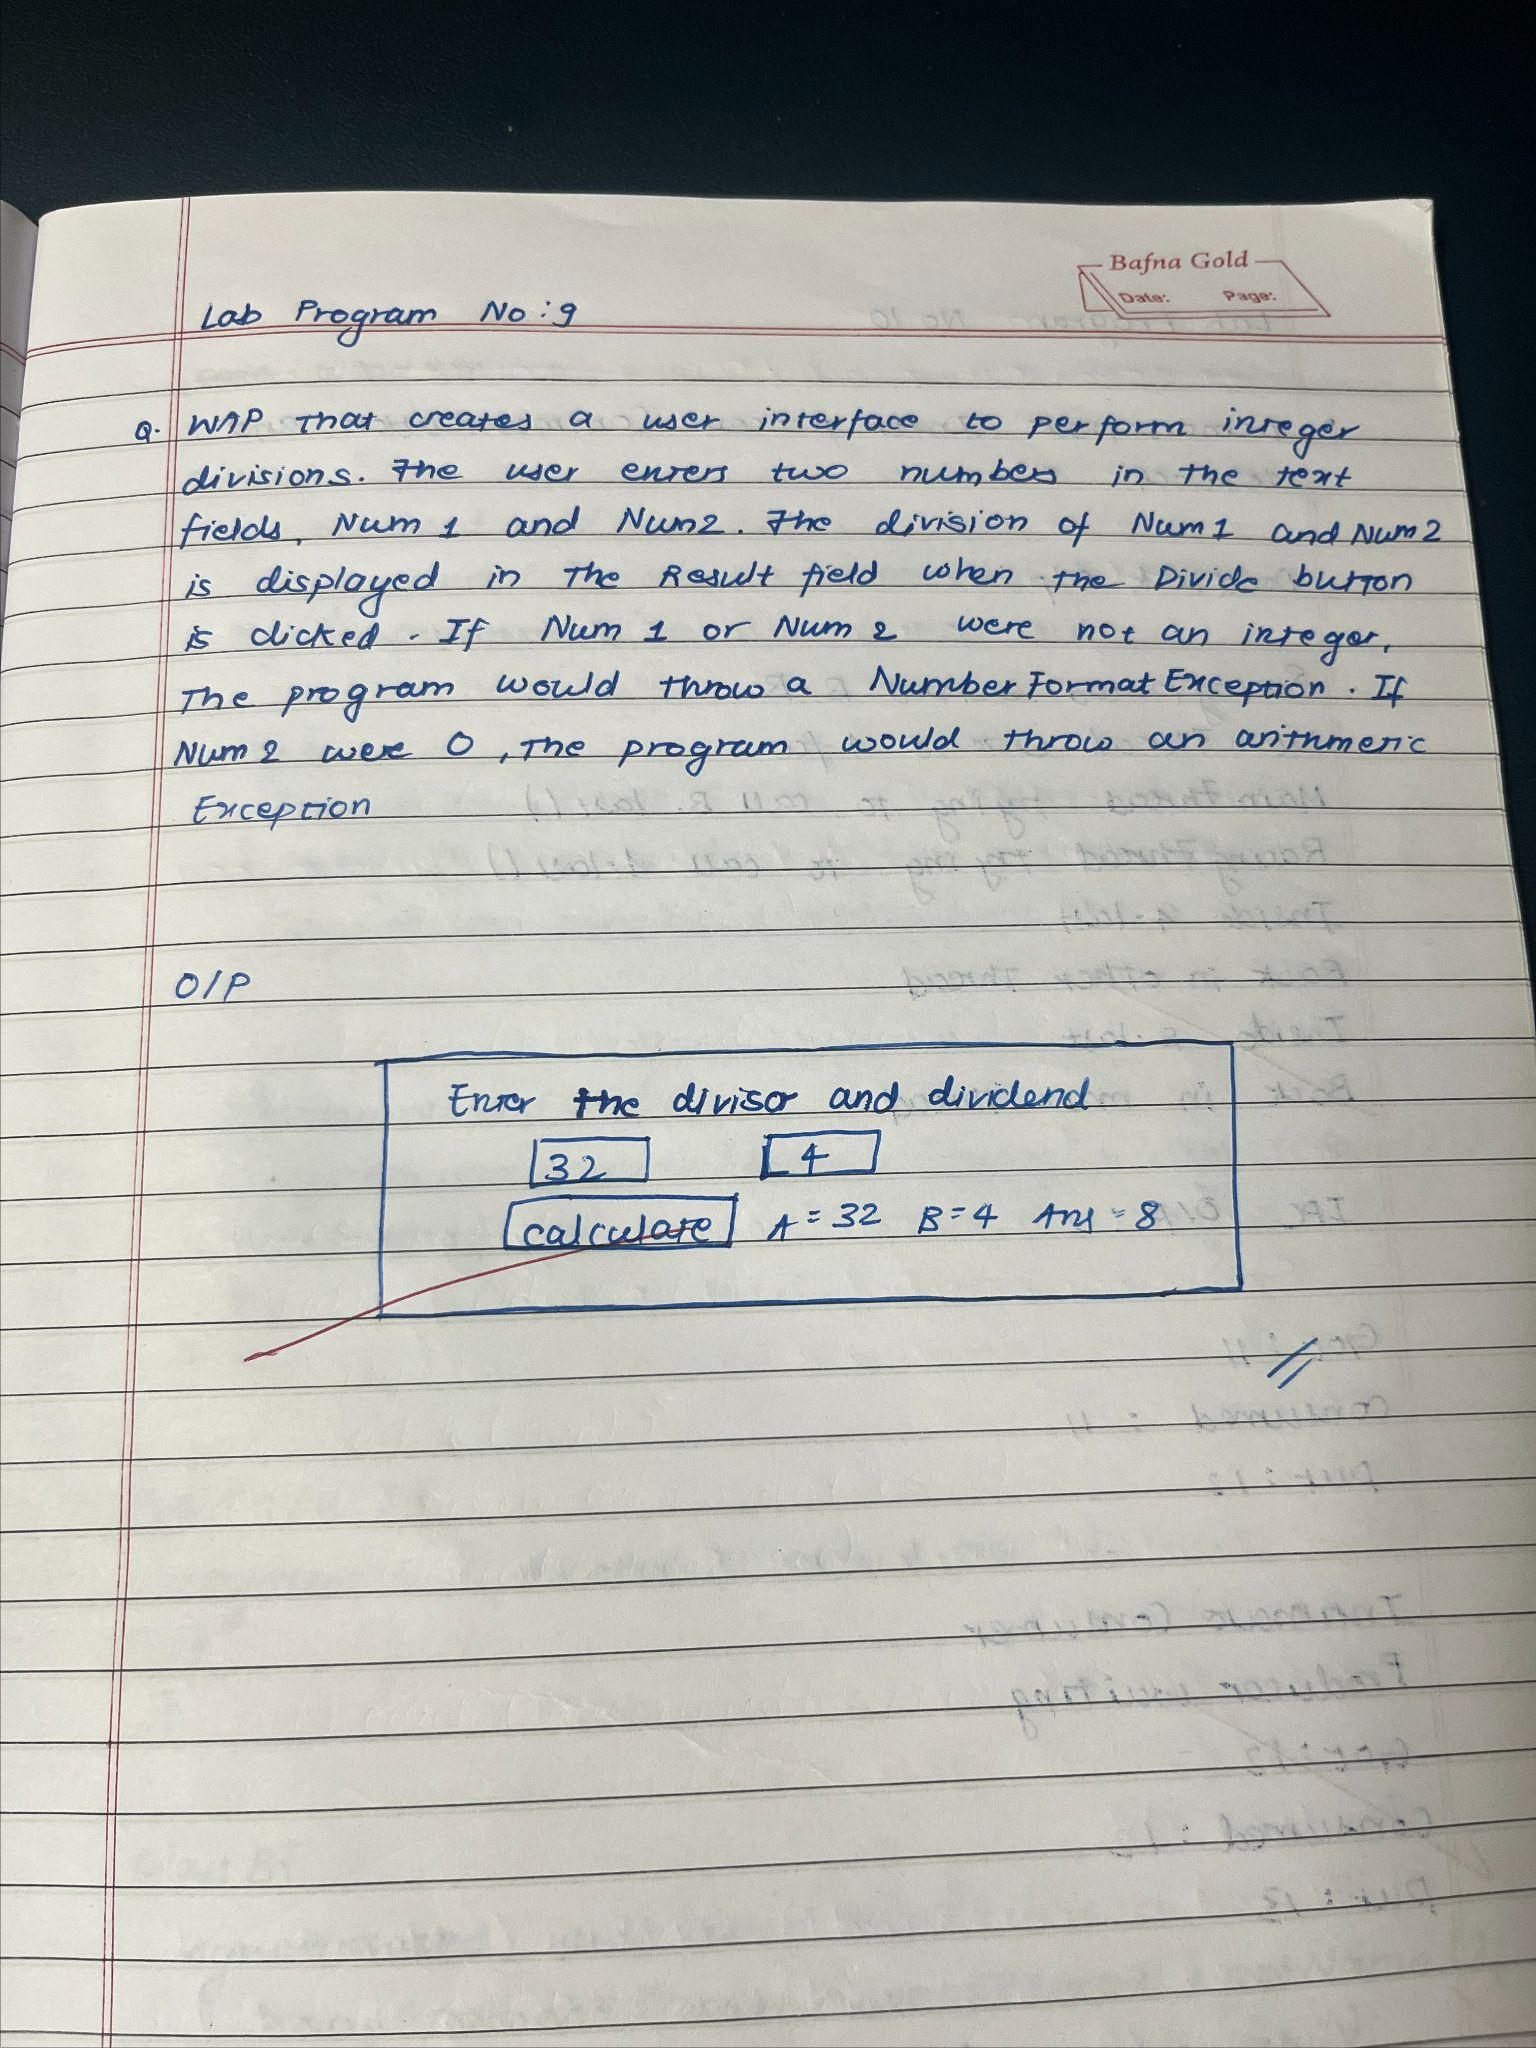 Bafna Gold
Date: Page:
Lab Program No:9
Q. WAP that creates a user interface to perform integer
divisions. The user enters two numbers in the text
fields, Num 1 and Num2. The division of Num1 and Num2
is displayed in the Result field when the Divide button
is clicked. If Num 1 or Num 2 were not an integer,
The program would throw a Number Format Exception. If
Num 2 were 0, the program would throw an arithmetic
Exception
O/P
Enter the divisor and dividend
32 4
calculate A = 32 B = 4 Ans = 8